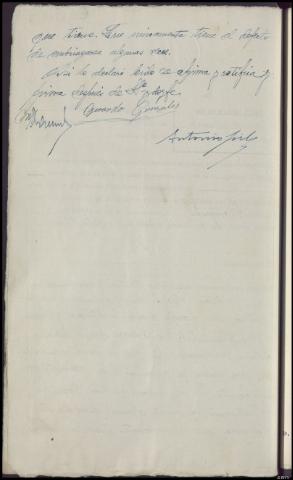 que tiene. Que unicamente tiene el defecto
de embriagarse algunas veces.
Asi lo declara leido se afirma ratifica y
firma después de S.S. doy fe.
Gerardo González
Antonio